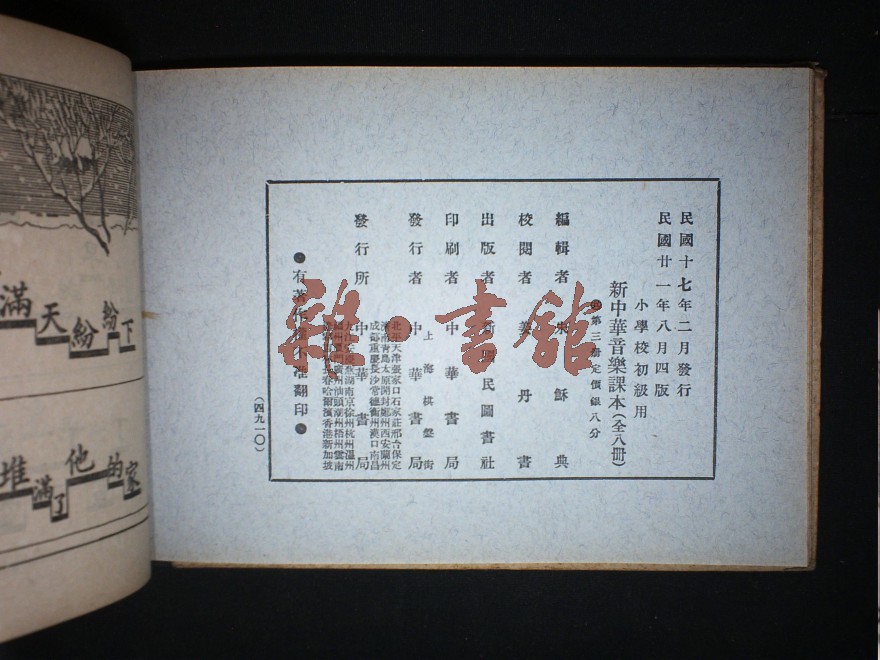 民國十七年二月發行
民國廿一年八月四版
小學校初級用
新中華音樂課本(全八冊)
第三冊定價銀八分
編輯者朱穌典
校閱者姜丹書
出版者新國民圖書社
印刷者中華書局
發行者中華書局
上海棋盤街
發行所中華書局
北平天津張家口石家莊邢台保定
濟南青島太原開封鄭州西安蘭州
成都重慶長沙常德衡州漢口南昌
南京徐州杭州溫州
汕頭潮州梧州雲南
哈爾濱香港新加坡
有著作權不准翻印
(四九一〇)
雜·書館
滿天紛紛下
堆滿了他的家